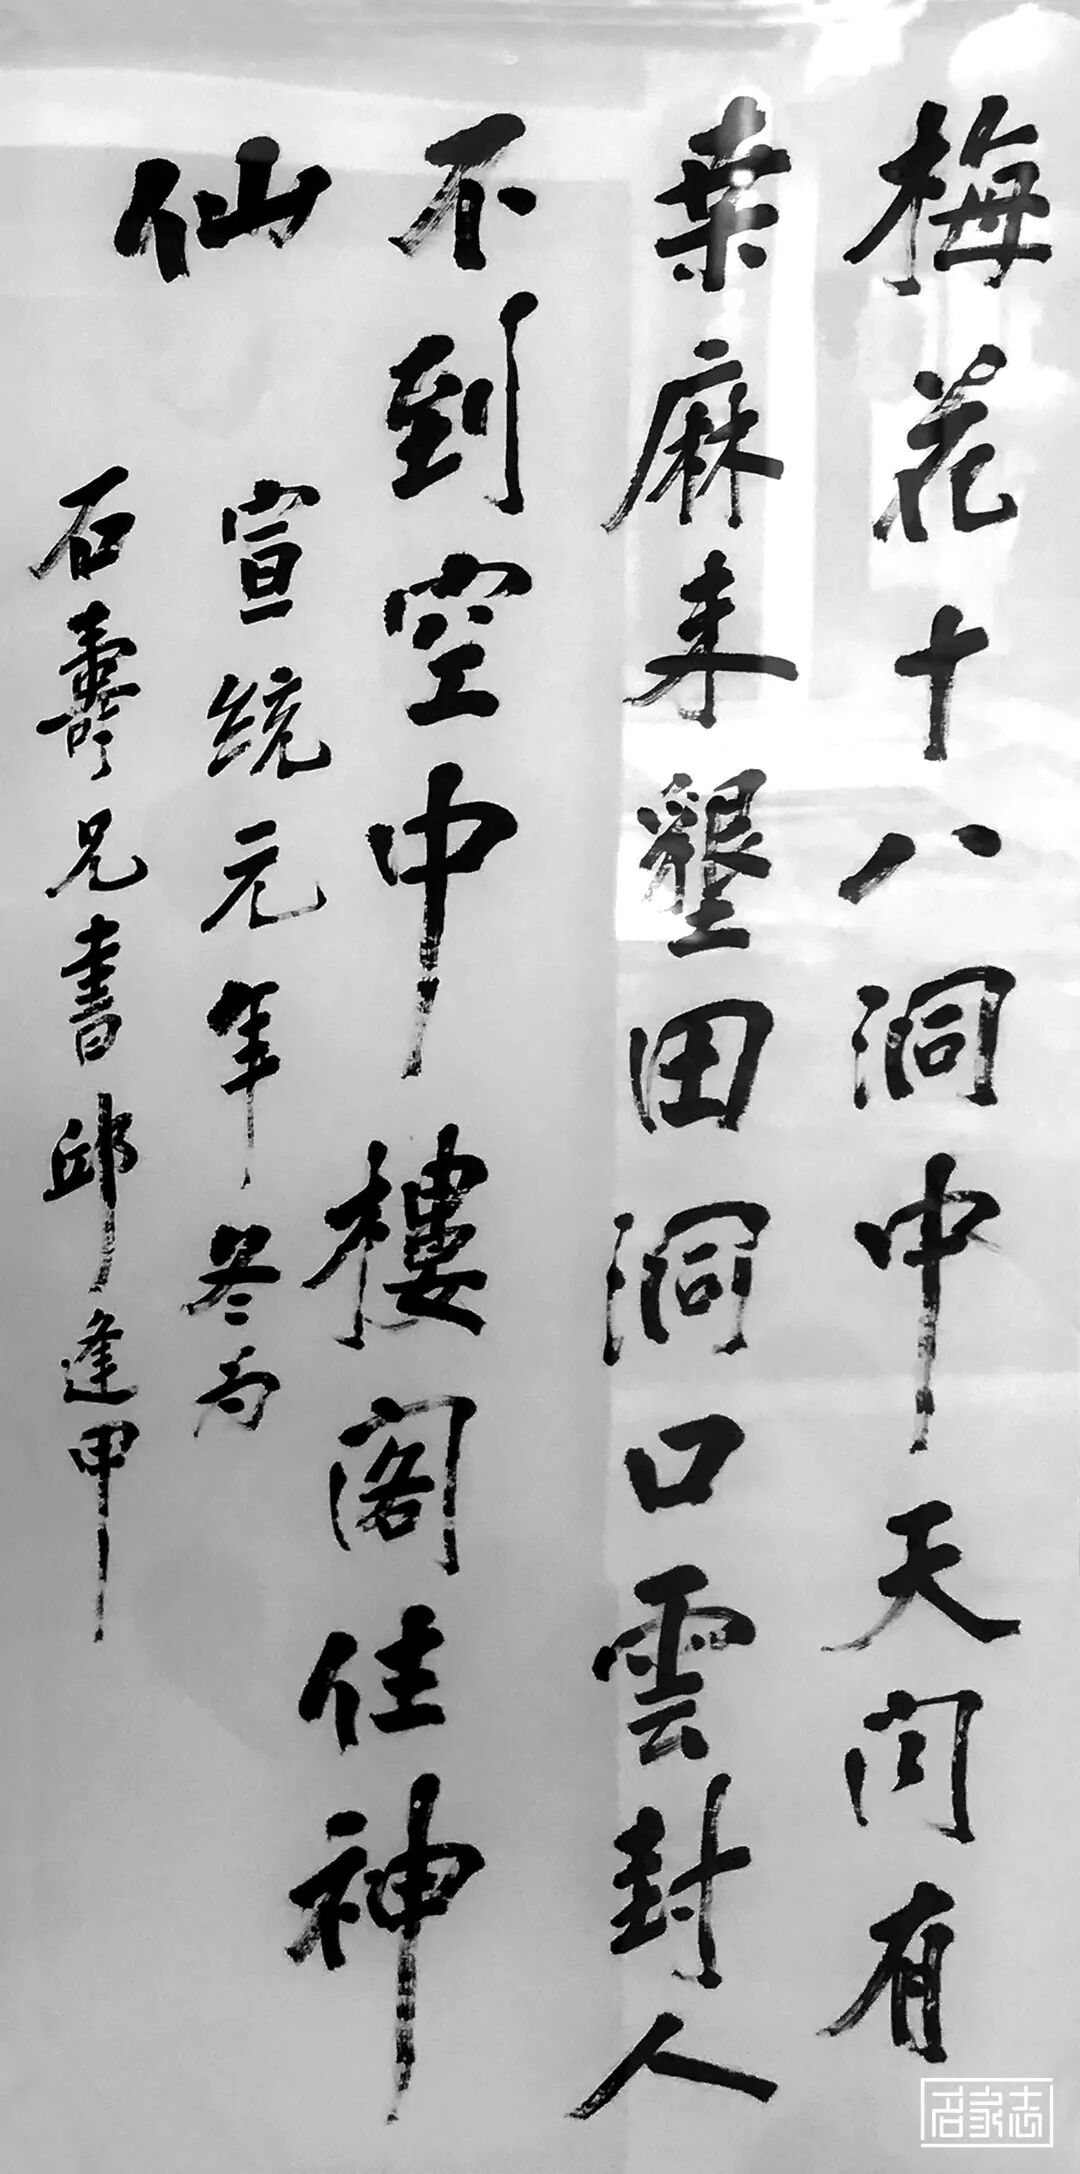 梅花十八洞中天問有
桒麻未墾田洞口雲封人
不到空中樓閣住神
仙
宣統元年冬為
石壽兄書邱逢甲
名家志